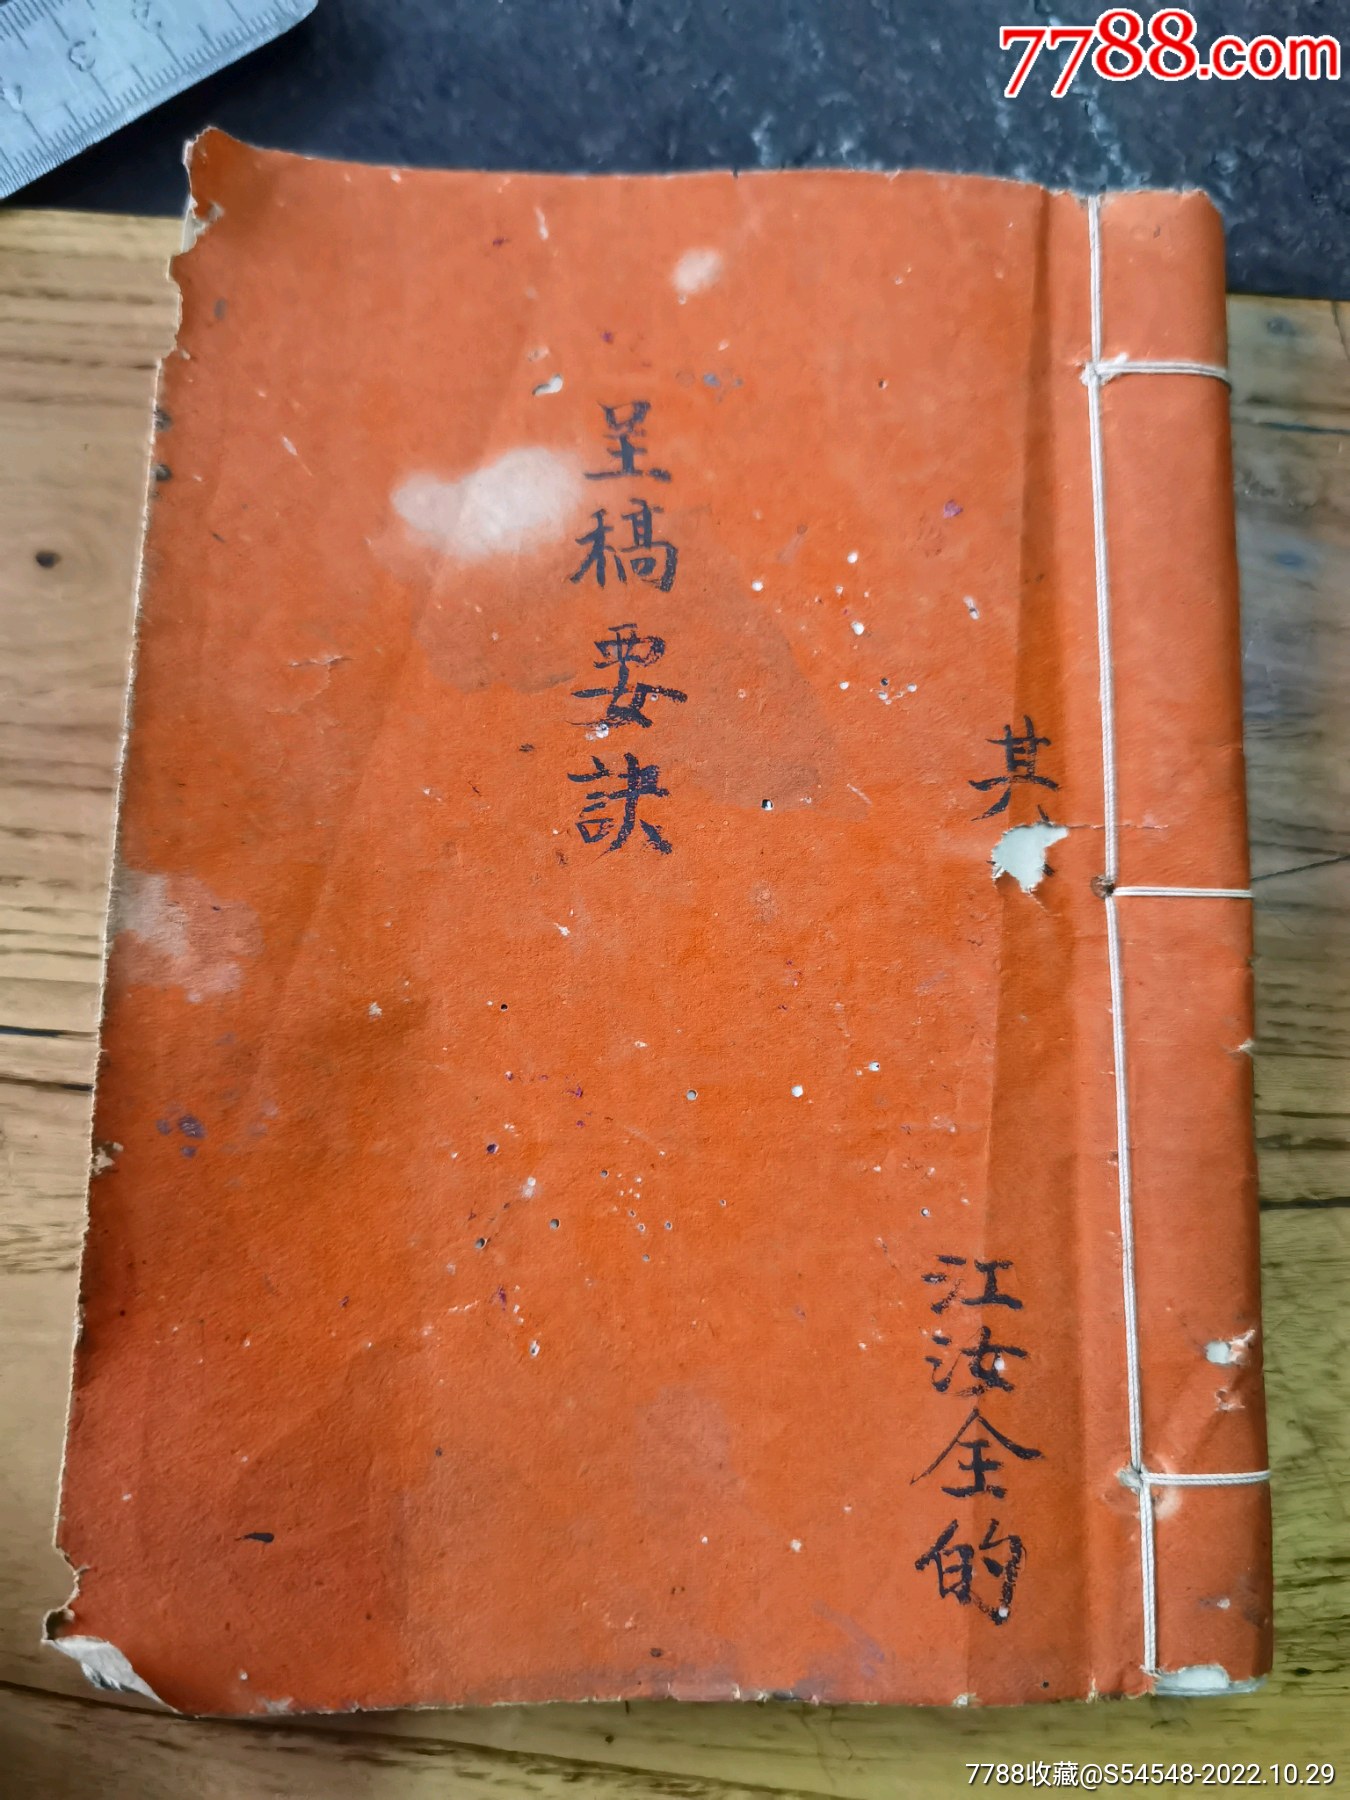 7788.com
其
江汝全的
呈稿要訣
7788收藏@S54548-2022.10.29